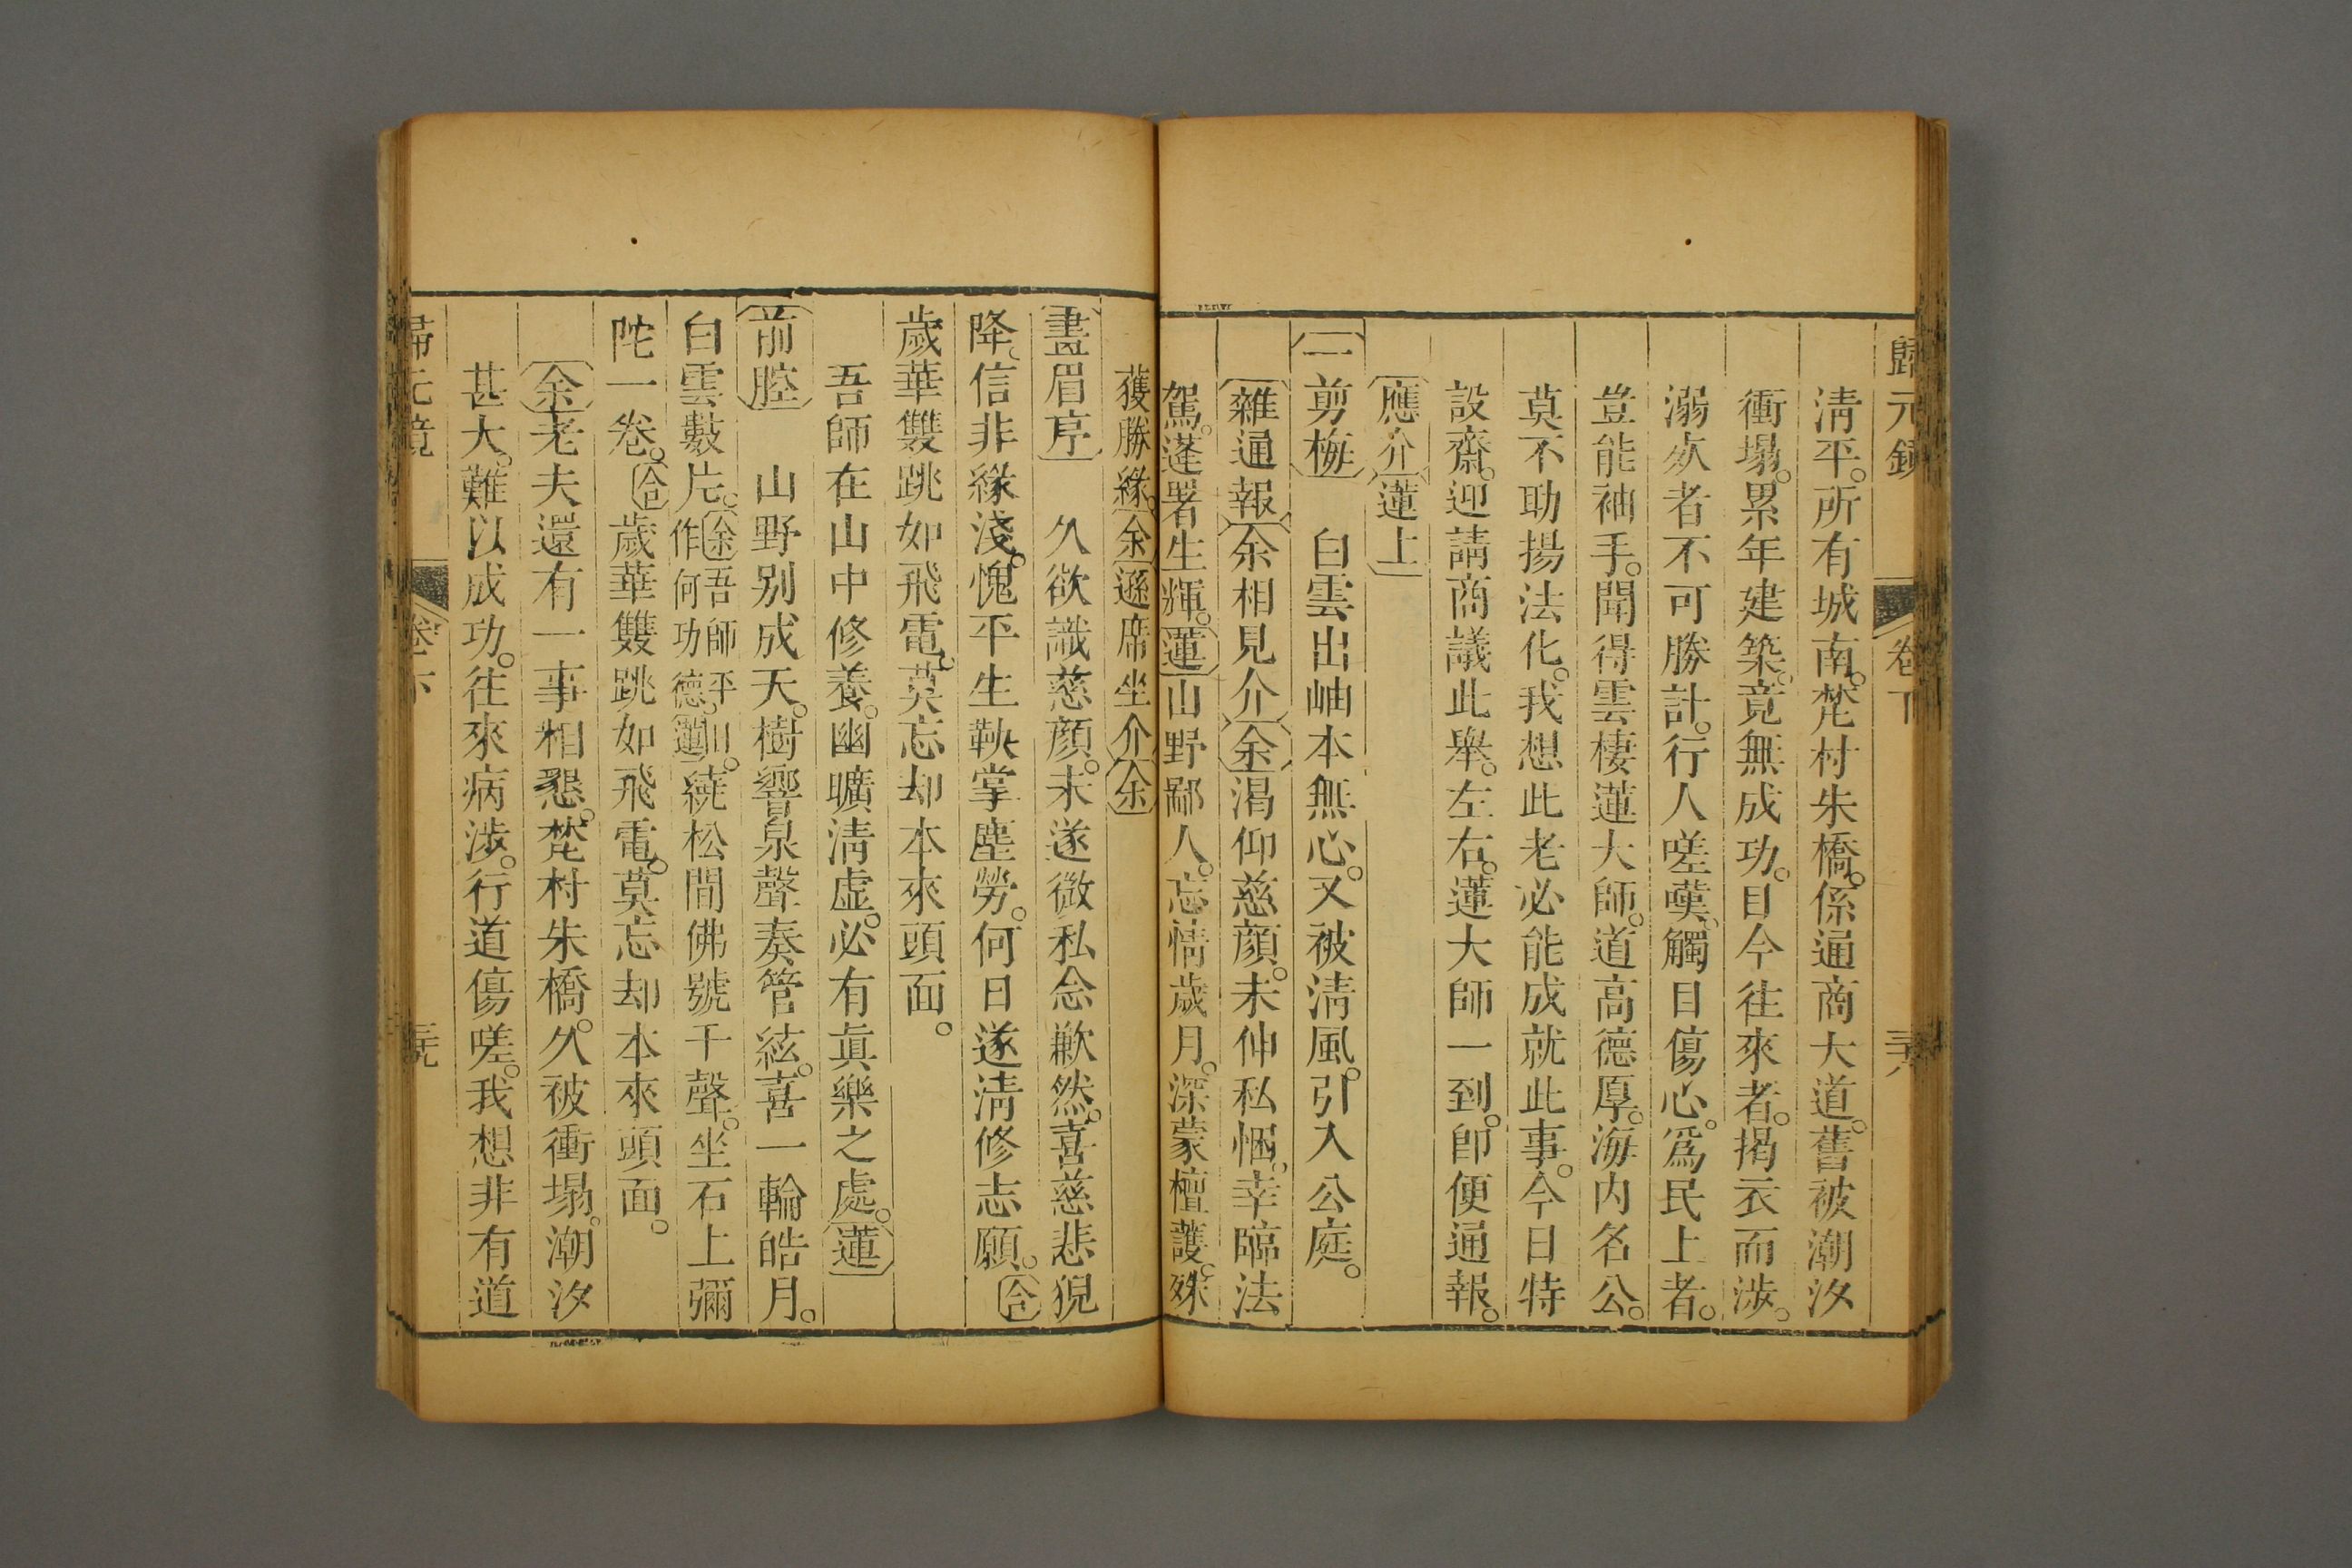 歸元鏡 卷下 三六
淸平。所有城南。梵村朱橋。係通商大道。舊被潮汐
衝塌。累年建築。竟無成功。目今徃來者。揭衣而涉。
溺㱥者不可勝計。行人嗟嘆。觸目傷心。爲民上者。
豈能袖手。聞得雲棲蓮大師。道高德厚。海内名公。
莫不助揚法化。我想此老必能成就此事。今日特
設齋。迎請商議此舉。左右。蓮大師一到。卽便通報。
應介蓮上
一剪梅 白雲出岫本無心。又被淸風。引入公庭。
雜通報余相見介余渴仰慈顔。未伸私悃。幸臨法
駕。蓬署生輝。蓮山野鄙人。忘情歲月。深蒙檀護。殊
獲勝緣。余遜席坐介余
畫眉序 久欲識慈顔。未遂微私念歉然。喜慈悲猊
降。信非緣淺。愧平生鞅掌塵勞。何日遂淸修志願。合
歲華雙跳如飛電。莫忘却本來頭面。
吾師在山中修養。幽曠淸虛。必有眞樂之處。蓮
前腔 山野别成天。樹響泉聲奏管絃。喜一輪皓月。
白雲數片。余吾師平山。作何功德。蓮繞松間佛號千聲。坐石上彌
陀一卷。合歲華雙跳如飛電。莫忘却本來頭面。
余老夫還有一事相懇。梵村朱橋。久被衝塌。潮汐
甚大。難以成功。徃來病涉。行道傷嗟。我想非有道
歸元鏡 卷下